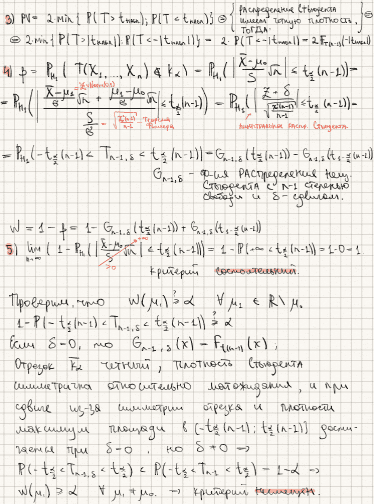 3) PV = 2 min { P(T > t набл); P(T < t набл)} = { Распределение Стьюдента имеет чёткую плотность, тогда } =
= 2 min { P(T > |t набл|); P(T < -|t набл|)} = 2 · P(T < -|t набл|) = 2F t(n-1)(-|t набл|)
4) β = P_H₁( T(X₁, ..., Xₙ) ∉ k_α) = P_H₁(|X̄-μ₀/S √n| ≤ t_α/2(n-1)) =
= P_H₁(| (X̄-μ₁/σ √n + μ₁-μ₀/σ √n) / (S/σ) | ≤ t_α/2(n-1)) = P_H₁(| (Z+δ) / √(χ²(n-1)/n-1) | ≤ t_α/2(n-1)) =
Теорема Фишера
= P_H₁(-t_α/2(n-1) < T_n-1,δ < t_α/2(n-1)) = G_n-1,δ(t_α/2(n-1)) - G_n-1,δ(t_1-α/2(n-1))
G_n-1,δ - ф-ия распределения нец.
Стьюдента с n-1 степенью
свободы и δ - сдвигом.
W = 1-β = 1 - G_n-1,δ(t_α/2(n-1)) + G_n-1,δ(t_1-α/2(n-1))
5) lim n→∞ (1 - P_H₁(|X̄-μ₀/S √n| ≤ t_α/2(n-1))) = 1 - P(+∞ < t_α/2(n-1)) = 1-0 = 1
>0
критерий состоятельный.
Проверим, что W(μ₁) ≥? α ∀ μ₁ ∈ R \ μ₀
1 - P(-t_α/2(n-1) < T_n-1,δ < t_α/2(n-1)) ≥? α
Если δ = 0, то G_n-1,δ(x) = F_t(n-1)(x) ;
Отрезок k̄_α чётный, плотность Стьюдента
симметрична относительно матожидания, и при
сдвиге из-за симметрии отрезка и плотности
максимум площади в [-t_α/2(n-1); t_α/2(n-1)] дости-
гается при δ = 0, но δ ≠ 0 ⇒
P(-t_α/2 < T_n-1,δ < t_α/2) < P(-t_α/2 < T_n-1 < t_α/2) = 1-α ⇒
W(μ₁) ≥ α ∀ μ₁ ≠ μ₀ ⇒ критерий